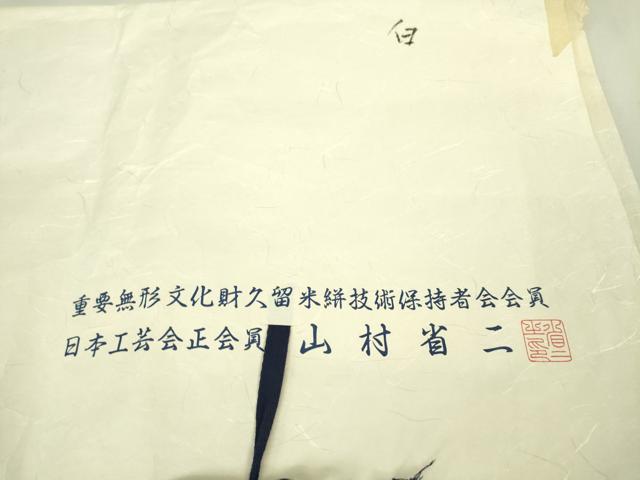 重要無形文化財久留米絣技術保持者会会員
日本工芸会正会員 山村省二